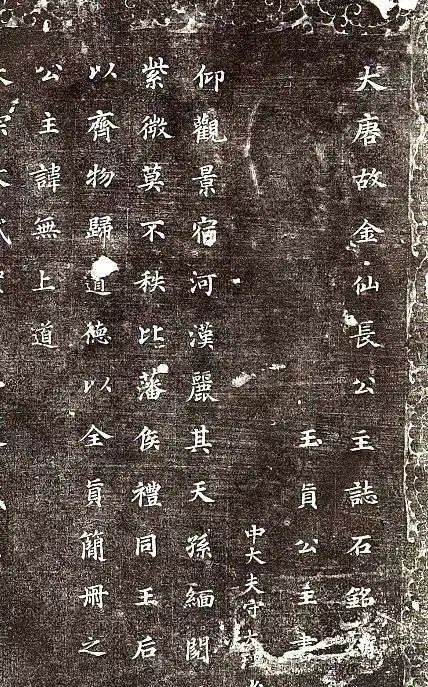 大唐故金仙長公主誌石銘
玉真公主書
中大夫守大
仰觀景宿河漢麗其天孫緬閱
紫微莫不秩比藩侯禮同王后
以齊物歸道德以全真簡冊之
公主諱無上道